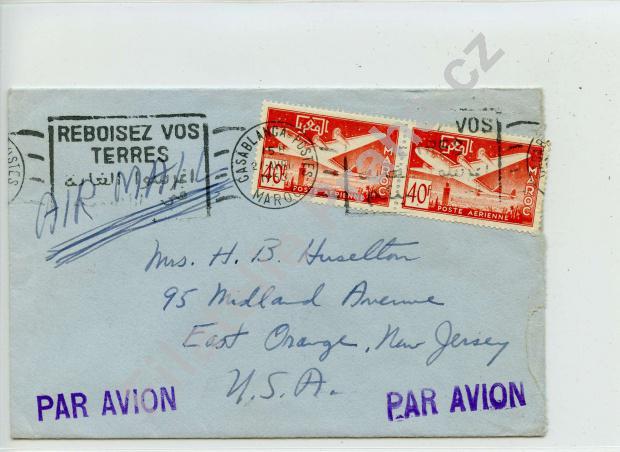 REBOISEZ VOS
TERRES
AIR MAIL
CASABLANCA-POSTES
MAROC
المغرب
40F
POSTE AERIENNE
MAROC
VOS
المغرب
40F
POSTE AERIENNE
MAROC
Mrs. H. B. Huselton
95 Midland Avenue
East Orange, New Jersey
U.S.A.
PAR AVION
PAR AVION